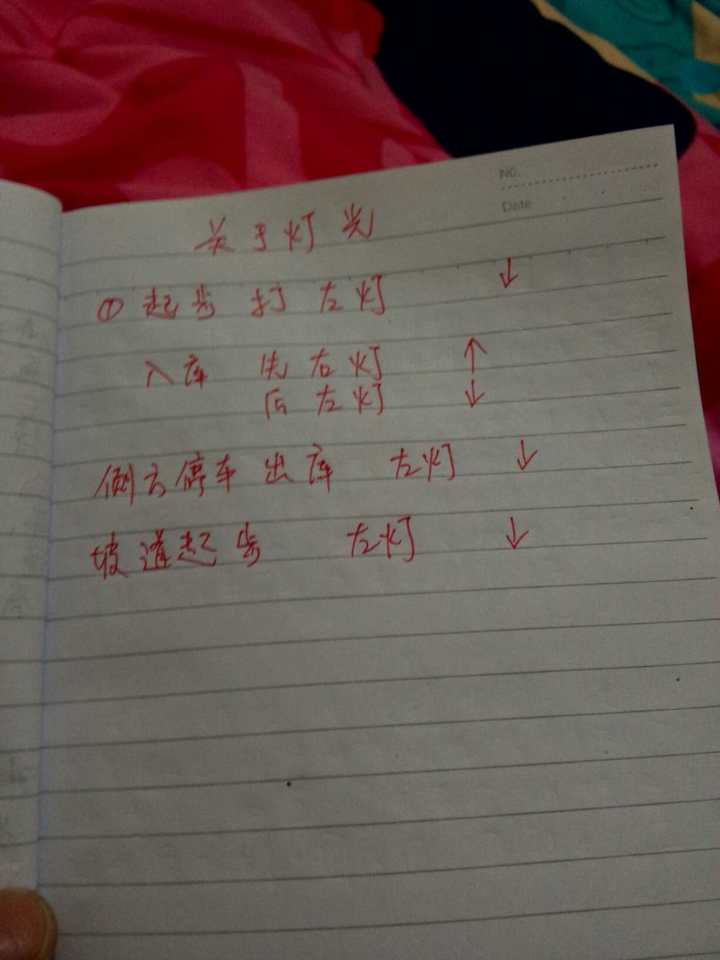 No.
Date
关于灯光
① 起步 打 左灯 ↓
入库 先右灯 ↑
后左灯 ↓
侧方停车出库 左灯 ↓
坡道起步 左灯 ↓